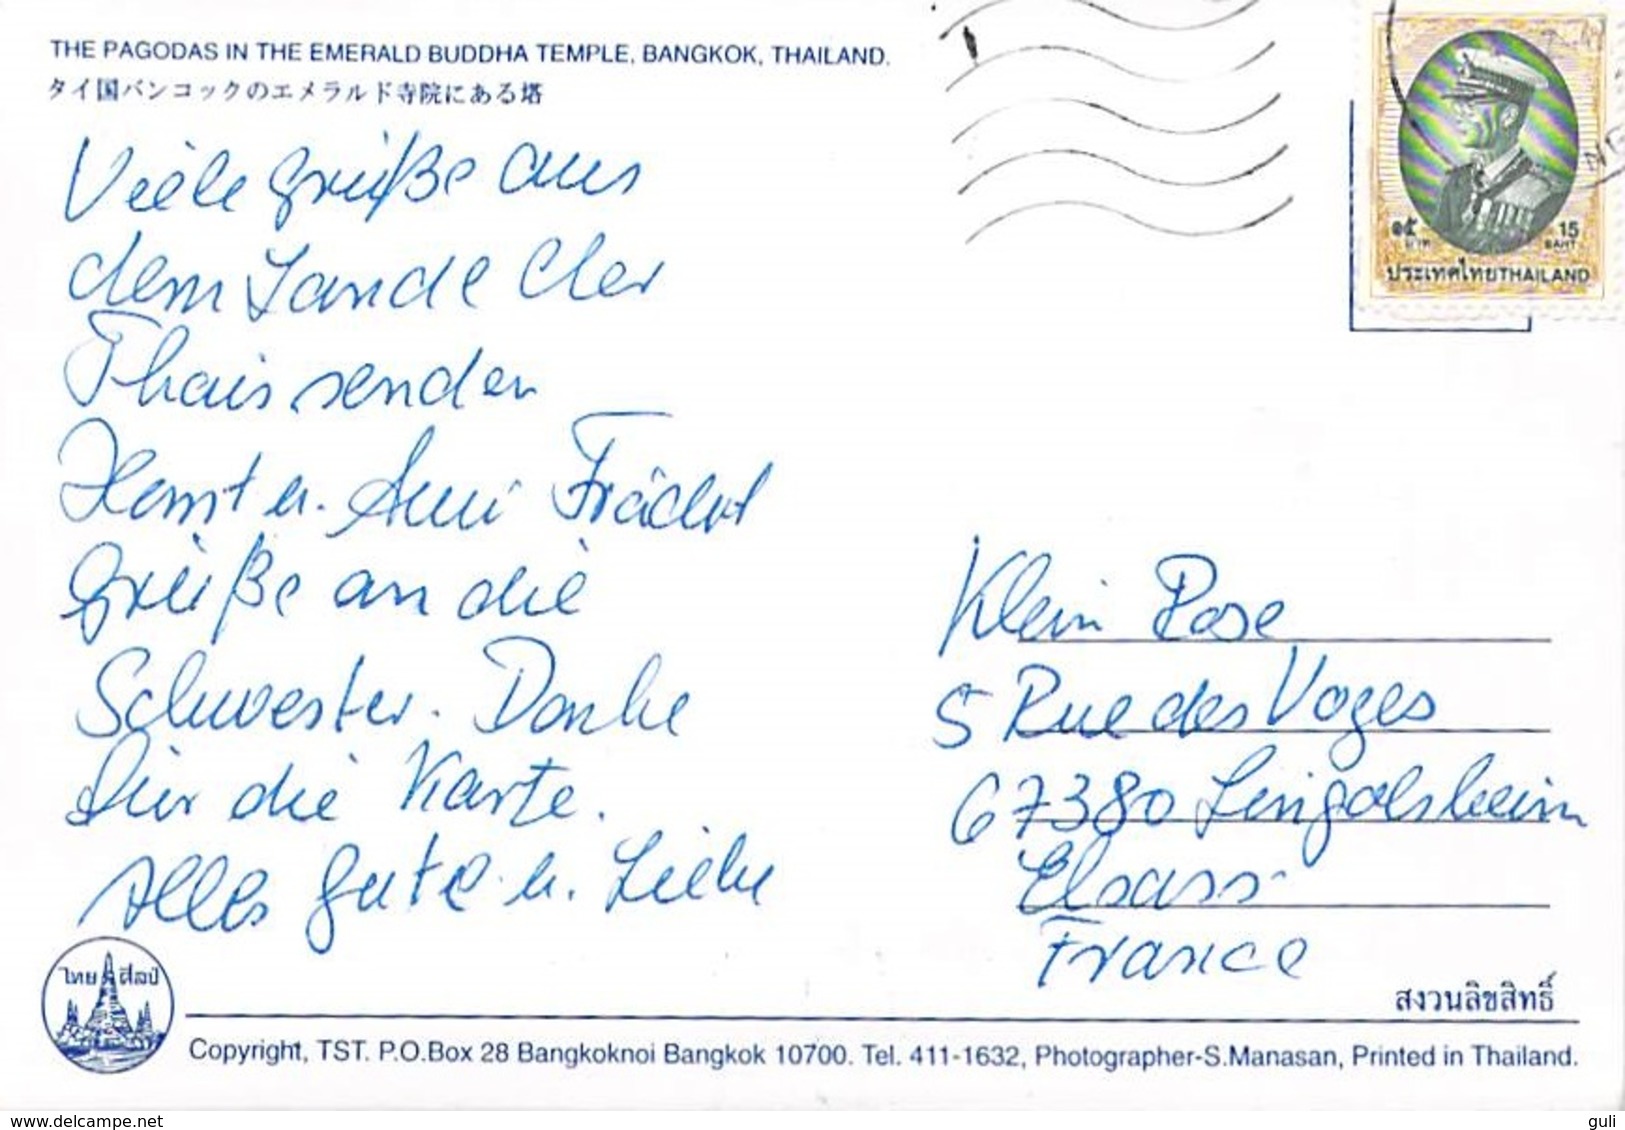 THE PAGODAS IN THE EMERALD BUDDHA TEMPLE, BANGKOK, THAILAND.
タイ国バンコックのエメラルド寺院にある塔
๑๕ บาท
15 BAHT
ประเทศไทย THAILAND
Viele Grüße aus
dem Lande der
Thais senden
Horst u. Anni
Grüße an die
Schwester. Danke
für die Karte.
Alles gute u. Liebe
Klein Rose
5 Rue des Voges
67380 Lingolsheim
Elsass
France
ไทย ศิลป์
สงวนลิขสิทธิ์
Copyright, TST. P.O.Box 28 Bangkoknoi Bangkok 10700. Tel. 411-1632, Photographer-S.Manasan, Printed in Thailand.
delcampe.net
guli